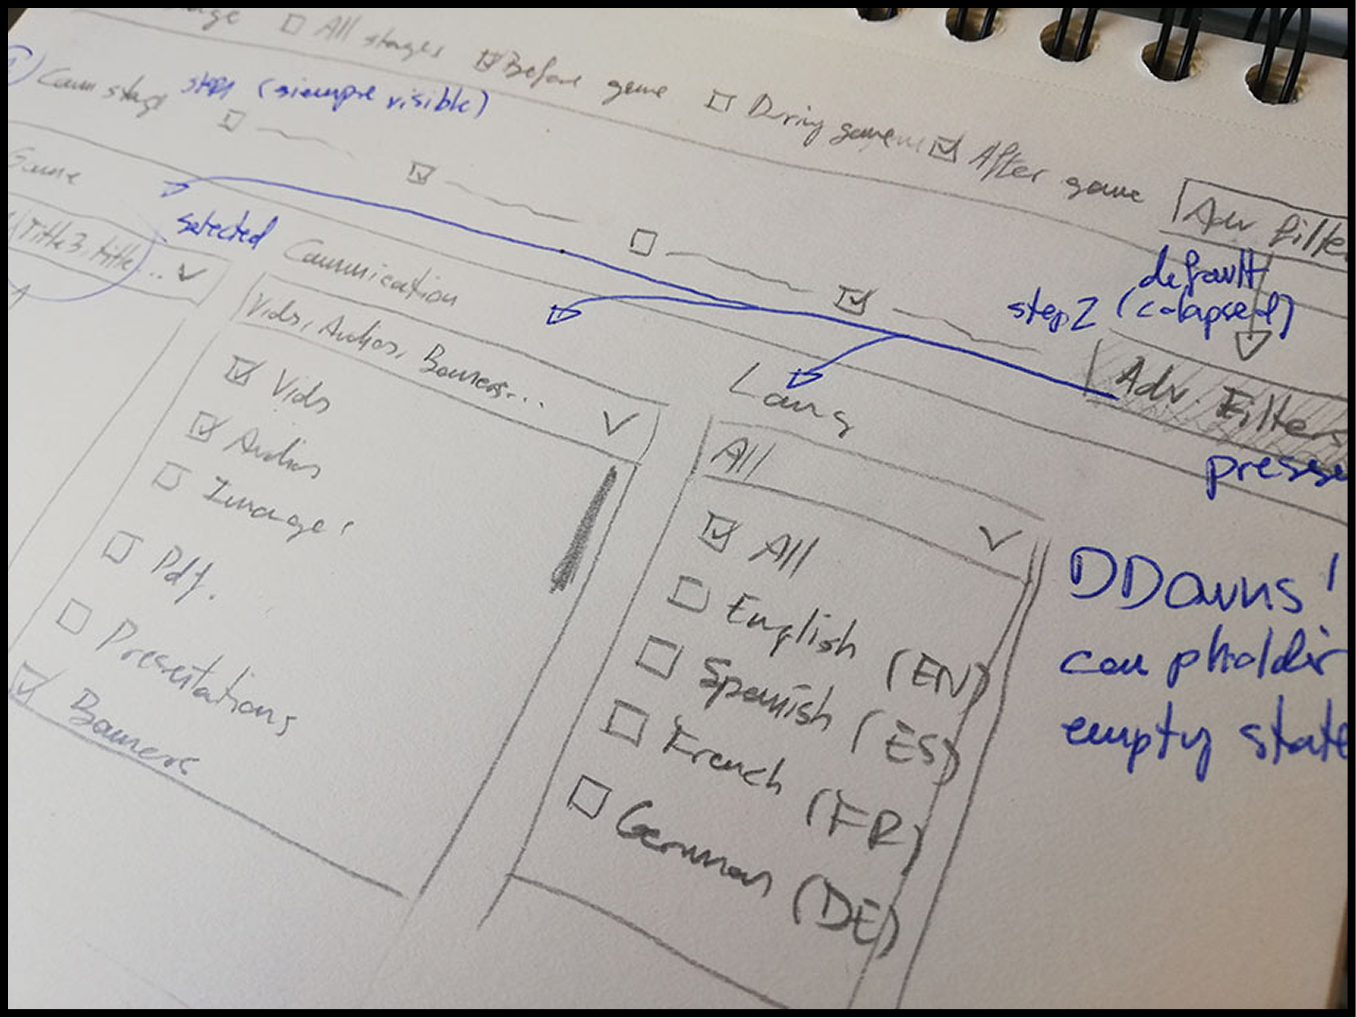 All stages Before game During game After game
Comm stage step1 (siempre visible)
Adv filte
default
step 2 (colapsed)
Game
Title3, title...
selected
Communication
Vids, Audios, Banners...
Vids
Audios
Images
Pdf.
Presentations
Banners
Lang
All
All
English (EN)
Spanish (ES)
French (FR)
German (DE)
Adv. Filters
presse
DDowns
can pholder
empty state